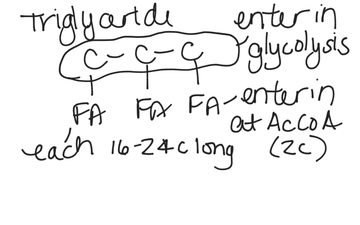 Triglyceride
enter in
glycolysis
C - C - C
FA FA FA - enter in
at AcCoA
each 16-24c long (2c)